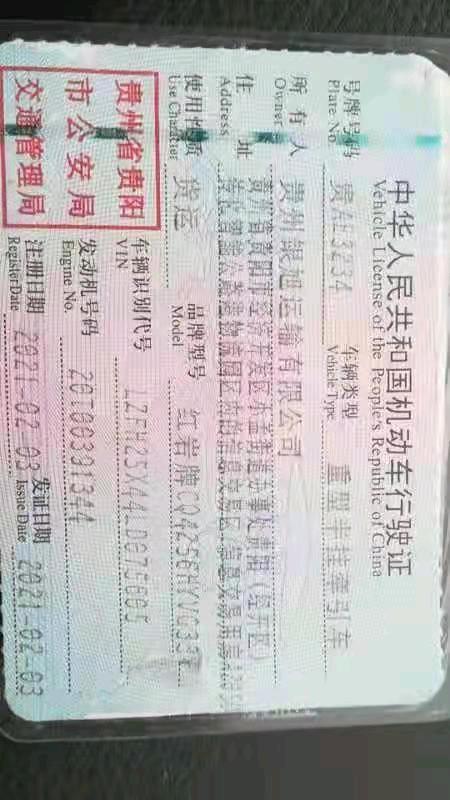 中华人民共和国机动车行驶证
Vehicle License of the People's Republic of China
号牌号码 贵AE3234 车辆类型 重型半挂牵引车
Plate No. Vehicle Type
所有人 贵州银旭运输有限公司
Owner
住址 贵州省贵阳市经济开发区
Address
使用性质 货运 品牌型号 红岩牌
Use Character Model
贵州省贵阳
市公安局
交通管理局
车辆识别代号 LZFH25X44LD075605
VIN
发动机号码 20100391344
Engine No.
注册日期 2021-02-03 发证日期 2021-02-03
Register Date Issue Date